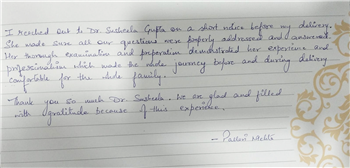 I reached out to Dr. Susheela Gupta on a short notice before my delivery.
She made sure all our questions were properly addressed and answered.
Her thorough examination and preparation demonstrated her experience and
professionalism which made the whole journey before and during delivery
comfortable for the whole family.
Thank you so much Dr. Susheela. We are glad and filled
with gratitude because of this experience.
- Pallavi